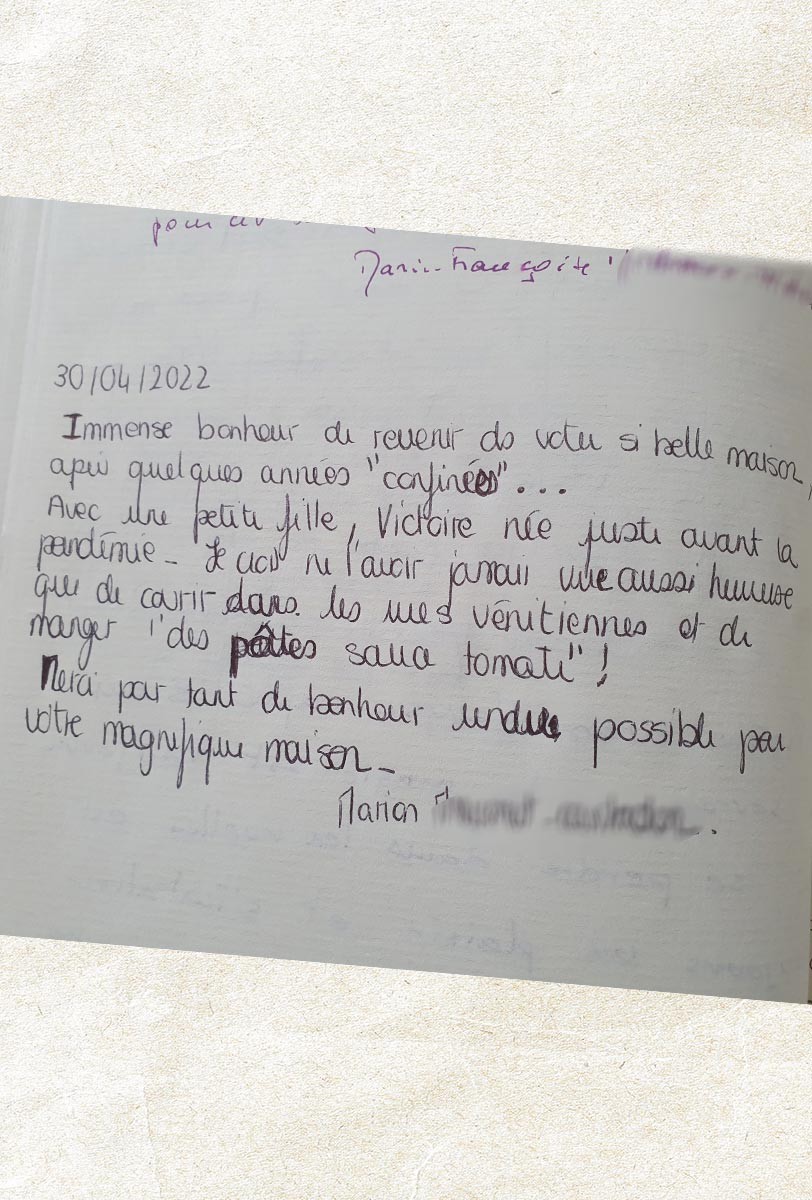 pour
Marie-Françoise
30/04/2022
Immense bonheur de revenir ds votre si belle maison,
après quelques années "confinées"...
Avec une petite fille, Victoire née juste avant la
pandémie - Je crois ne l'avoir jamais vue aussi heureuse
que de courir dans les rues vénitiennes et de
manger "des pâtes sauce tomate" !
Merci par tant de bonheur rendu possible par
votre magnifique maison -
Marion